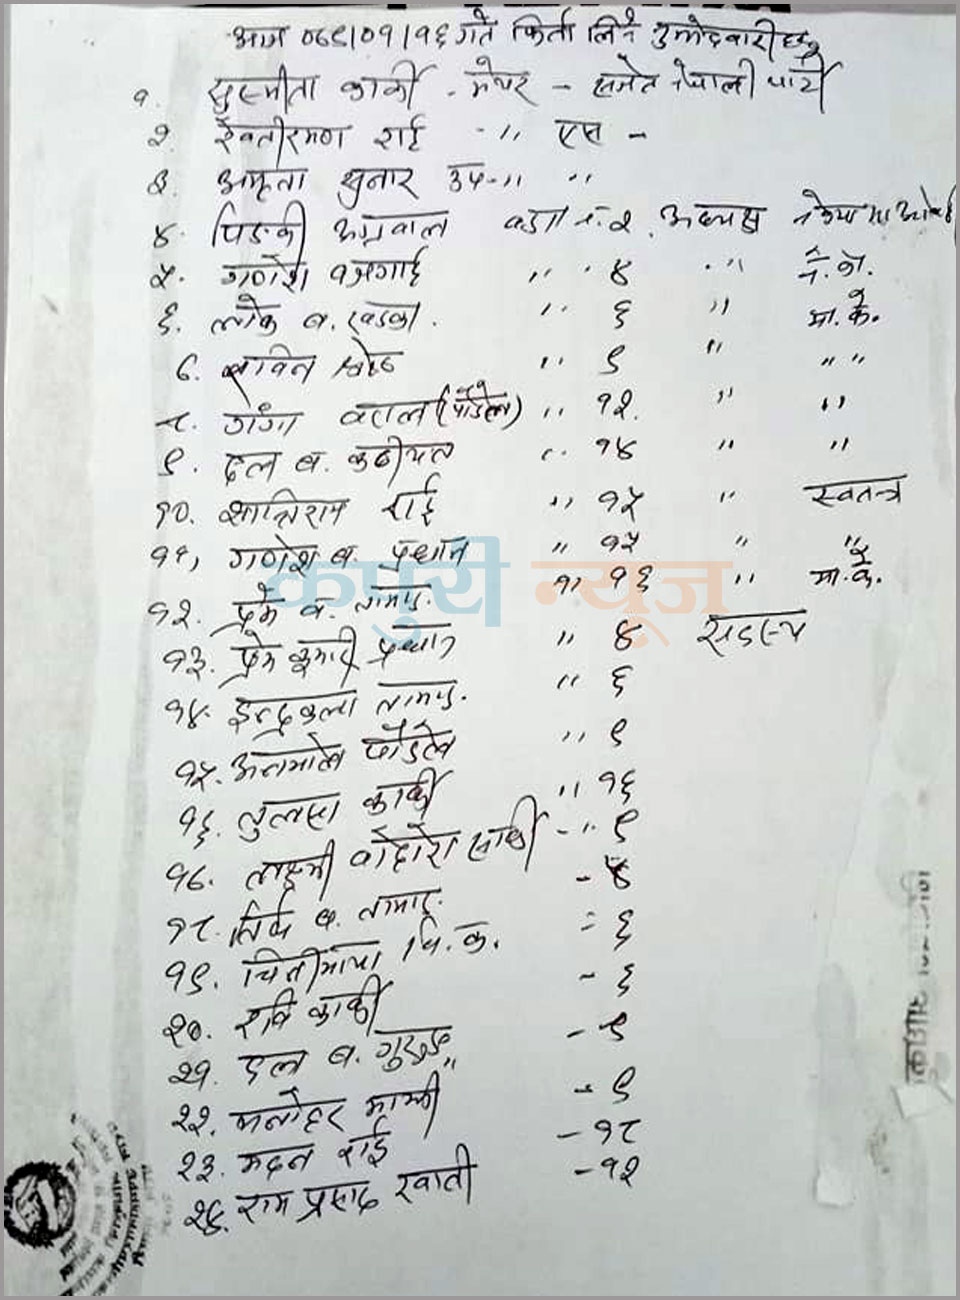 आज ०७९।०१।१६ गते फिर्ता लिने उम्मेदवारी हरु
१. सुस्मीता कार्की - मेयर - समेत नेपाली पार्टी
२. रेवतीरमण राई - ,, एस -
३. अमृता सुनार उप-,, ,,
४. पिङ्की अग्रवाल वडा नं. २ अध्यक्ष नेकपा माओवादी
५. गणेश बजगाई ,, ४ ,, ने. काँ.
६. लोक ब. खडका. ,, ६ ,, मा. के.
७. सावित्रा श्रेष्ठ ,, ९ ,, ,, ,,
८. गंगा बराल (पौडेल) ,, १२. ,, ,,
९. दल ब. कठायत ,, १४ ,, ,,
१०. शान्तिराम राई ,, १५ ,, स्वतन्त्र
११, गणेश ब. प्रधान ,, १५ ,, ,,
१२. प्रेम ब. तामाङ. ,, १६ ,, मा. के.
१३. प्रेम कुमारी प्रधान ,, ४ सदस्य
१४. इन्द्रकला तामाङ. ,, ६
१५. पौडेल ,, ९
१६. तुलसा कार्की ,, १६
१७. लक्ष्मी सार्की - ,, ९
१८. तिर्थ ब. तामाङ. - ४
१९. चितीमाया वि. क. - ६
२०. रवि कार्की - ६
२१. दल ब. गुरुङ - ९
२२. मनोहर माझी - ९
२३. मदन राई - १८
२४. राम प्रसाद खाती - १२
कपुरी न्यूज